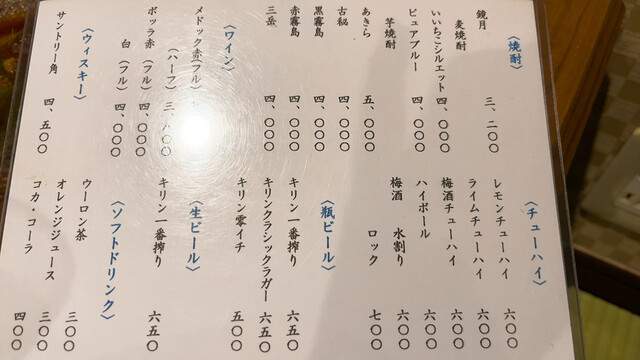 〈焼酎〉
鏡月 三、二〇〇
麦焼酎
いいちこシルエット 四、〇〇〇
ピュアブルー 四、〇〇〇
芋焼酎
あきら 五、〇〇〇
古秘 四、〇〇〇
黒霧島 四、〇〇〇
赤霧島 四、〇〇〇
三岳 四、〇〇〇
〈ワイン〉
メドック赤(フル)
(ハーフ)
ボッラ赤(フル) 四、〇〇〇
白(フル) 四、〇〇〇
〈ウィスキー〉
サントリー角 四、五〇〇
〈チューハイ〉
レモンチューハイ 六〇〇
ライムチューハイ 六〇〇
梅酒チューハイ 六〇〇
ハイボール 六〇〇
梅酒 水割り 六〇〇
ロック 七〇〇
〈瓶ビール〉
キリン一番搾り 六五〇
キリンクラシックラガー 六五〇
キリン零イチ 五〇〇
〈生ビール〉
キリン一番搾り 六五〇
〈ソフトドリンク〉
ウーロン茶 三〇〇
オレンジジュース 三〇〇
コカ・コーラ 四〇〇